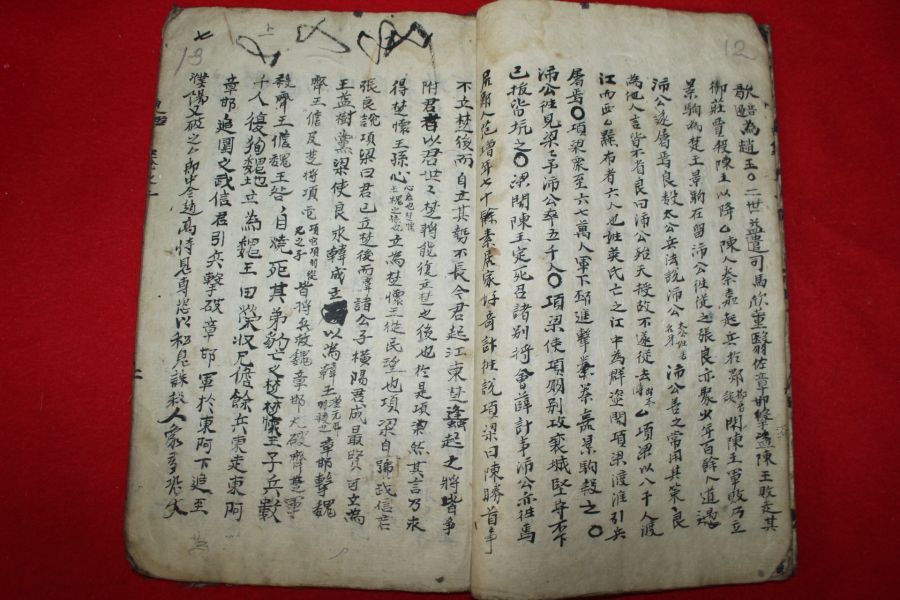 12
歇爲趙王〇二世益遣司馬欣董翳佐章邯擊盜陳王敗走其
御莊賈殺陳王以降陳人秦嘉起兵於郯聞陳王軍敗乃立
景駒爲楚王景駒在留沛公往從之張良亦聚少年百餘人道遇
沛公遂屬焉良數太公兵法說沛公沛公善之常用其策良
爲他人言皆不省良曰沛公殆天授故不遂從去項梁以八千人渡
江而西黥布者六人也姓英氏亡之江中爲群盜聞項梁渡淮引兵
屬焉〇項梁衆至六七萬人軍下邳進擊秦嘉景駒殺之〇
沛公往見梁々予沛公卒五千人〇項梁使項羽別攻襄城堅守不下
已拔皆坑之〇梁聞陳王定死召諸別將會薛計事沛公亦往焉
居鄛人范增年七十餘素居家好奇計往說項梁曰陳勝首事
七
上
13
不立楚後而自立其勢不長今君起江東楚蠭起之將皆爭
附君者以君世々楚將能復立楚之後也於是項梁然其言乃求
得楚懷王孫心立爲楚懷王從民望也項梁自號武信君
張良說項梁曰君已立楚後而韓諸公子橫陽君成最賢可立爲
王益樹黨梁使良求韓成立以爲韓王章邯擊魏
齊王儋及楚將項它皆將兵救魏章邯大破齊楚軍
殺齊王儋魏王咎自燒死其弟豹亡走楚楚懷王予兵數
千人復徇魏地立爲魏王田榮收兄儋餘兵東走東阿
章邯追圍之武信君引兵擊破章邯軍於東阿下追至
濮陽又破之郎中令趙高恃恩專恣以私怨誅殺人衆多恐大